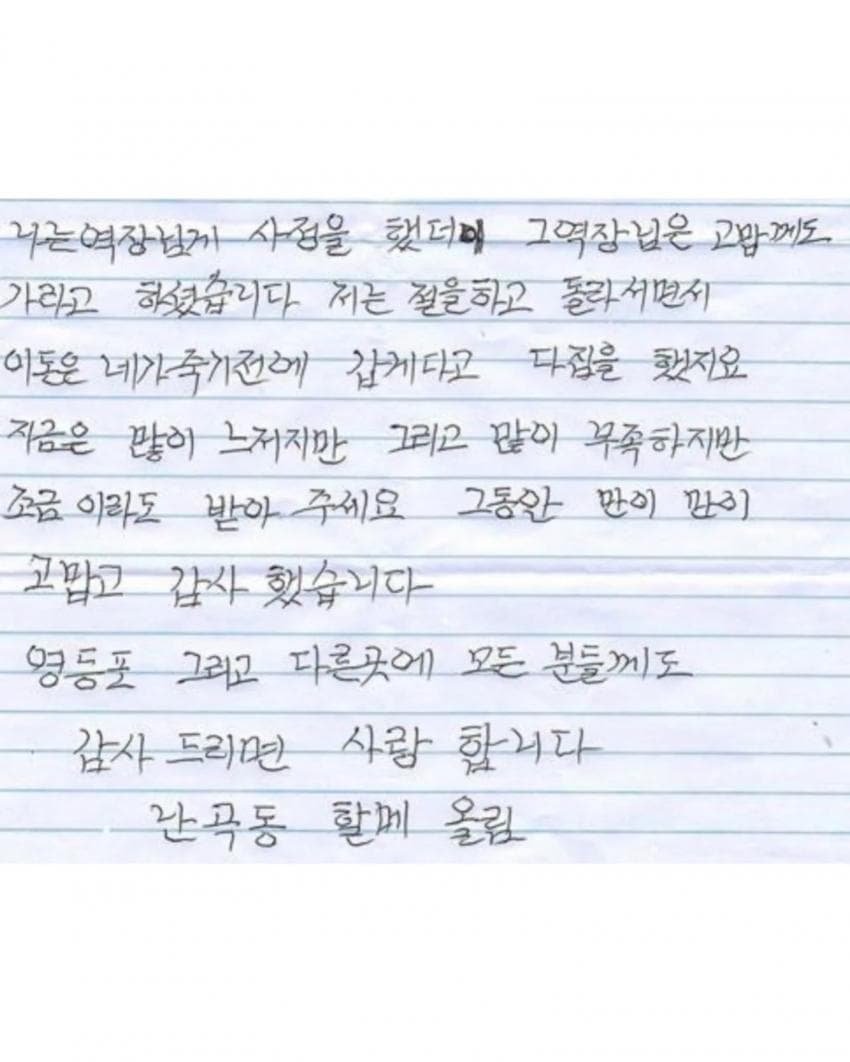 나는역장님게 사정을 했더니 그역장님은 고맙께도
가라고 하셨습니다 저는 절을하고 돌라서면서
이돈은 네가죽기전에 갑게다고 다짐을 했지요
지금은 많이 느저지만 그리고 많이 부족하지만
조금이라도 받아 주세요 그동안 만이 만이
고맙고 감사했습니다
영등포 그리고 다른곳에 모든 분들께도
감사드리면 사랑 합니다
난곡동 할메 올림